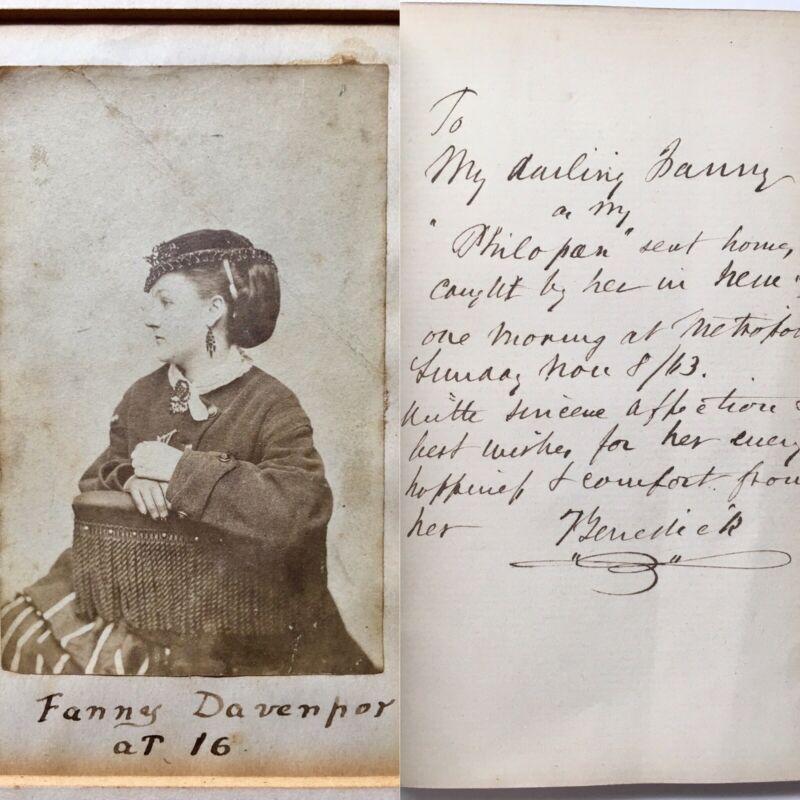 Fanny Davenpor
aT 16
To
My darling Fanny
a my
"Philopæn" sent home,
caught by her in New
one morning at Metropo
Sunday Nov 8/63.
With sincere affection &
best wishes for her every
happiness & comfort. from
her "Benedick"